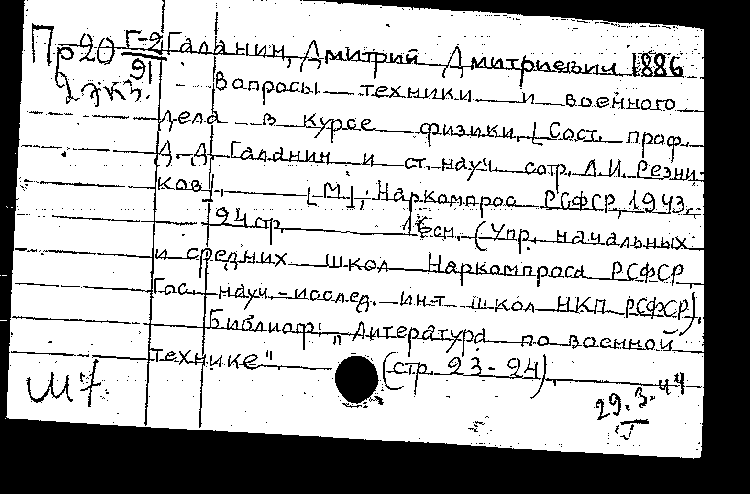 Пр20 Г-2/91 Галанин, Дмитрий Дмитриевич 1886
2 экз. Вопросы техники и военного
дела в курсе физики. [Сост. проф.
Д. Д. Галанин и ст. науч. сотр. Л. И. Резни-
ков]. [М], Наркомпрос РСФСР, 1943.
24 стр. см. (Упр. начальных
и средних школ Наркомпроса РСФСР.
Гос. науч.-исслед. ин-т школ НКП РСФСР).
Библиогр. "Литература по военной
технике". (стр. 23-24).
29.3.44